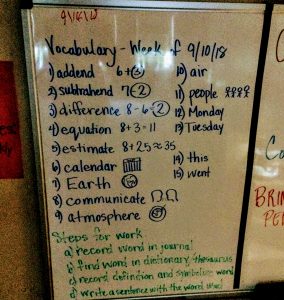 9/10/18
Vocabulary - Week of 9/10/18
1) addend 6+3
2) subtrahend 7-2
3) difference 8-6=2
4) equation 8+3=11
5) estimate 8+25≈35
6) calendar
7) Earth
8) communicate
9) atmosphere
10) air
11) people
12) Monday
13) Tuesday
14) this
15) went
Steps for work
a) record word in journal
b) find word in dictionary, thesaurus
c) record definition and symbolize word
d) write a sentence with the word